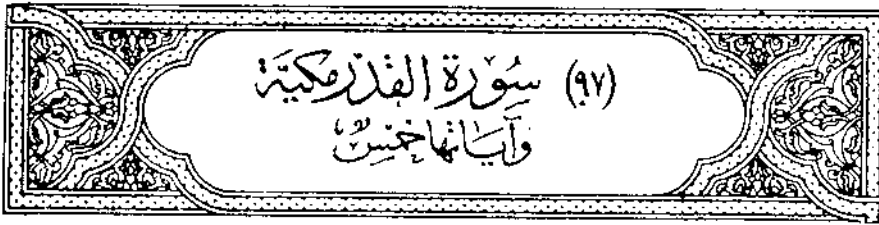 (٩٧) سُورَة القَدْر مَكِيَّة
وَآيَاتُهَا خَمْسٌ